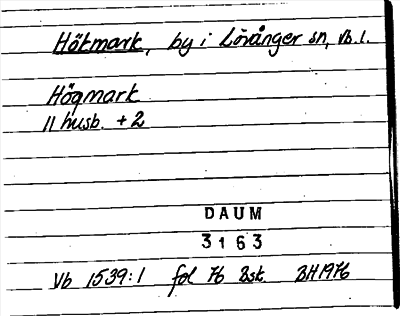 Hökmark, by i Lövånger sn, Vb. l.
Högmark
11 husb. + 2
DAUM
3163
Vb 1539:1 fol 76 Bsk BH 1976